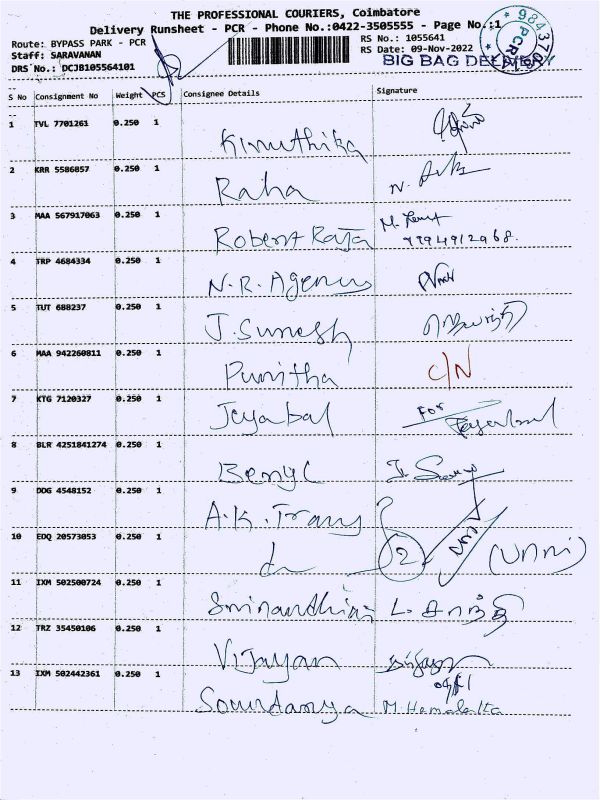 THE PROFESSIONAL COURIERS, Coimbatore
Delivery Runsheet - PCR - Phone No.:0422-3505555 - Page No.:1
Route: BYPASS PARK - PCR
Staff: SARAVANAN
DRS No.: DCJB105564101
RS No.: 1055641
RS Date: 09-Nov-2022
BIG BAG DELIVERY
PCR
S No Consignment No Weight PCS Consignee Details Signature
1 TVL 7701261 0.250 1 Kiruthika
2 KRR 5586857 0.250 1 Raha
3 MAA 567917063 0.250 1 Robert Raja M.
9994912968.
4 TRP 4684334 0.250 1 N.R. Agency
5 TUT 688237 0.250 1 J. Suresh
6 MAA 942260811 0.250 1 Punitha C/N
7 KTG 7120327 0.250 1 Jeyabal For Jeyabal
8 BLR 4251841274 0.250 1 Beryl
9 DDG 4548152 0.250 1 A.K. Trans
10 EDQ 20573053 0.250 1 do 2 (Unni)
11 IXM 502500724 0.250 1 Srinandhini L. சாந்தி
12 TRZ 35450106 0.250 1 Vijayan
13 IXM 502442361 0.250 1 Soundarya M. Hemalatha